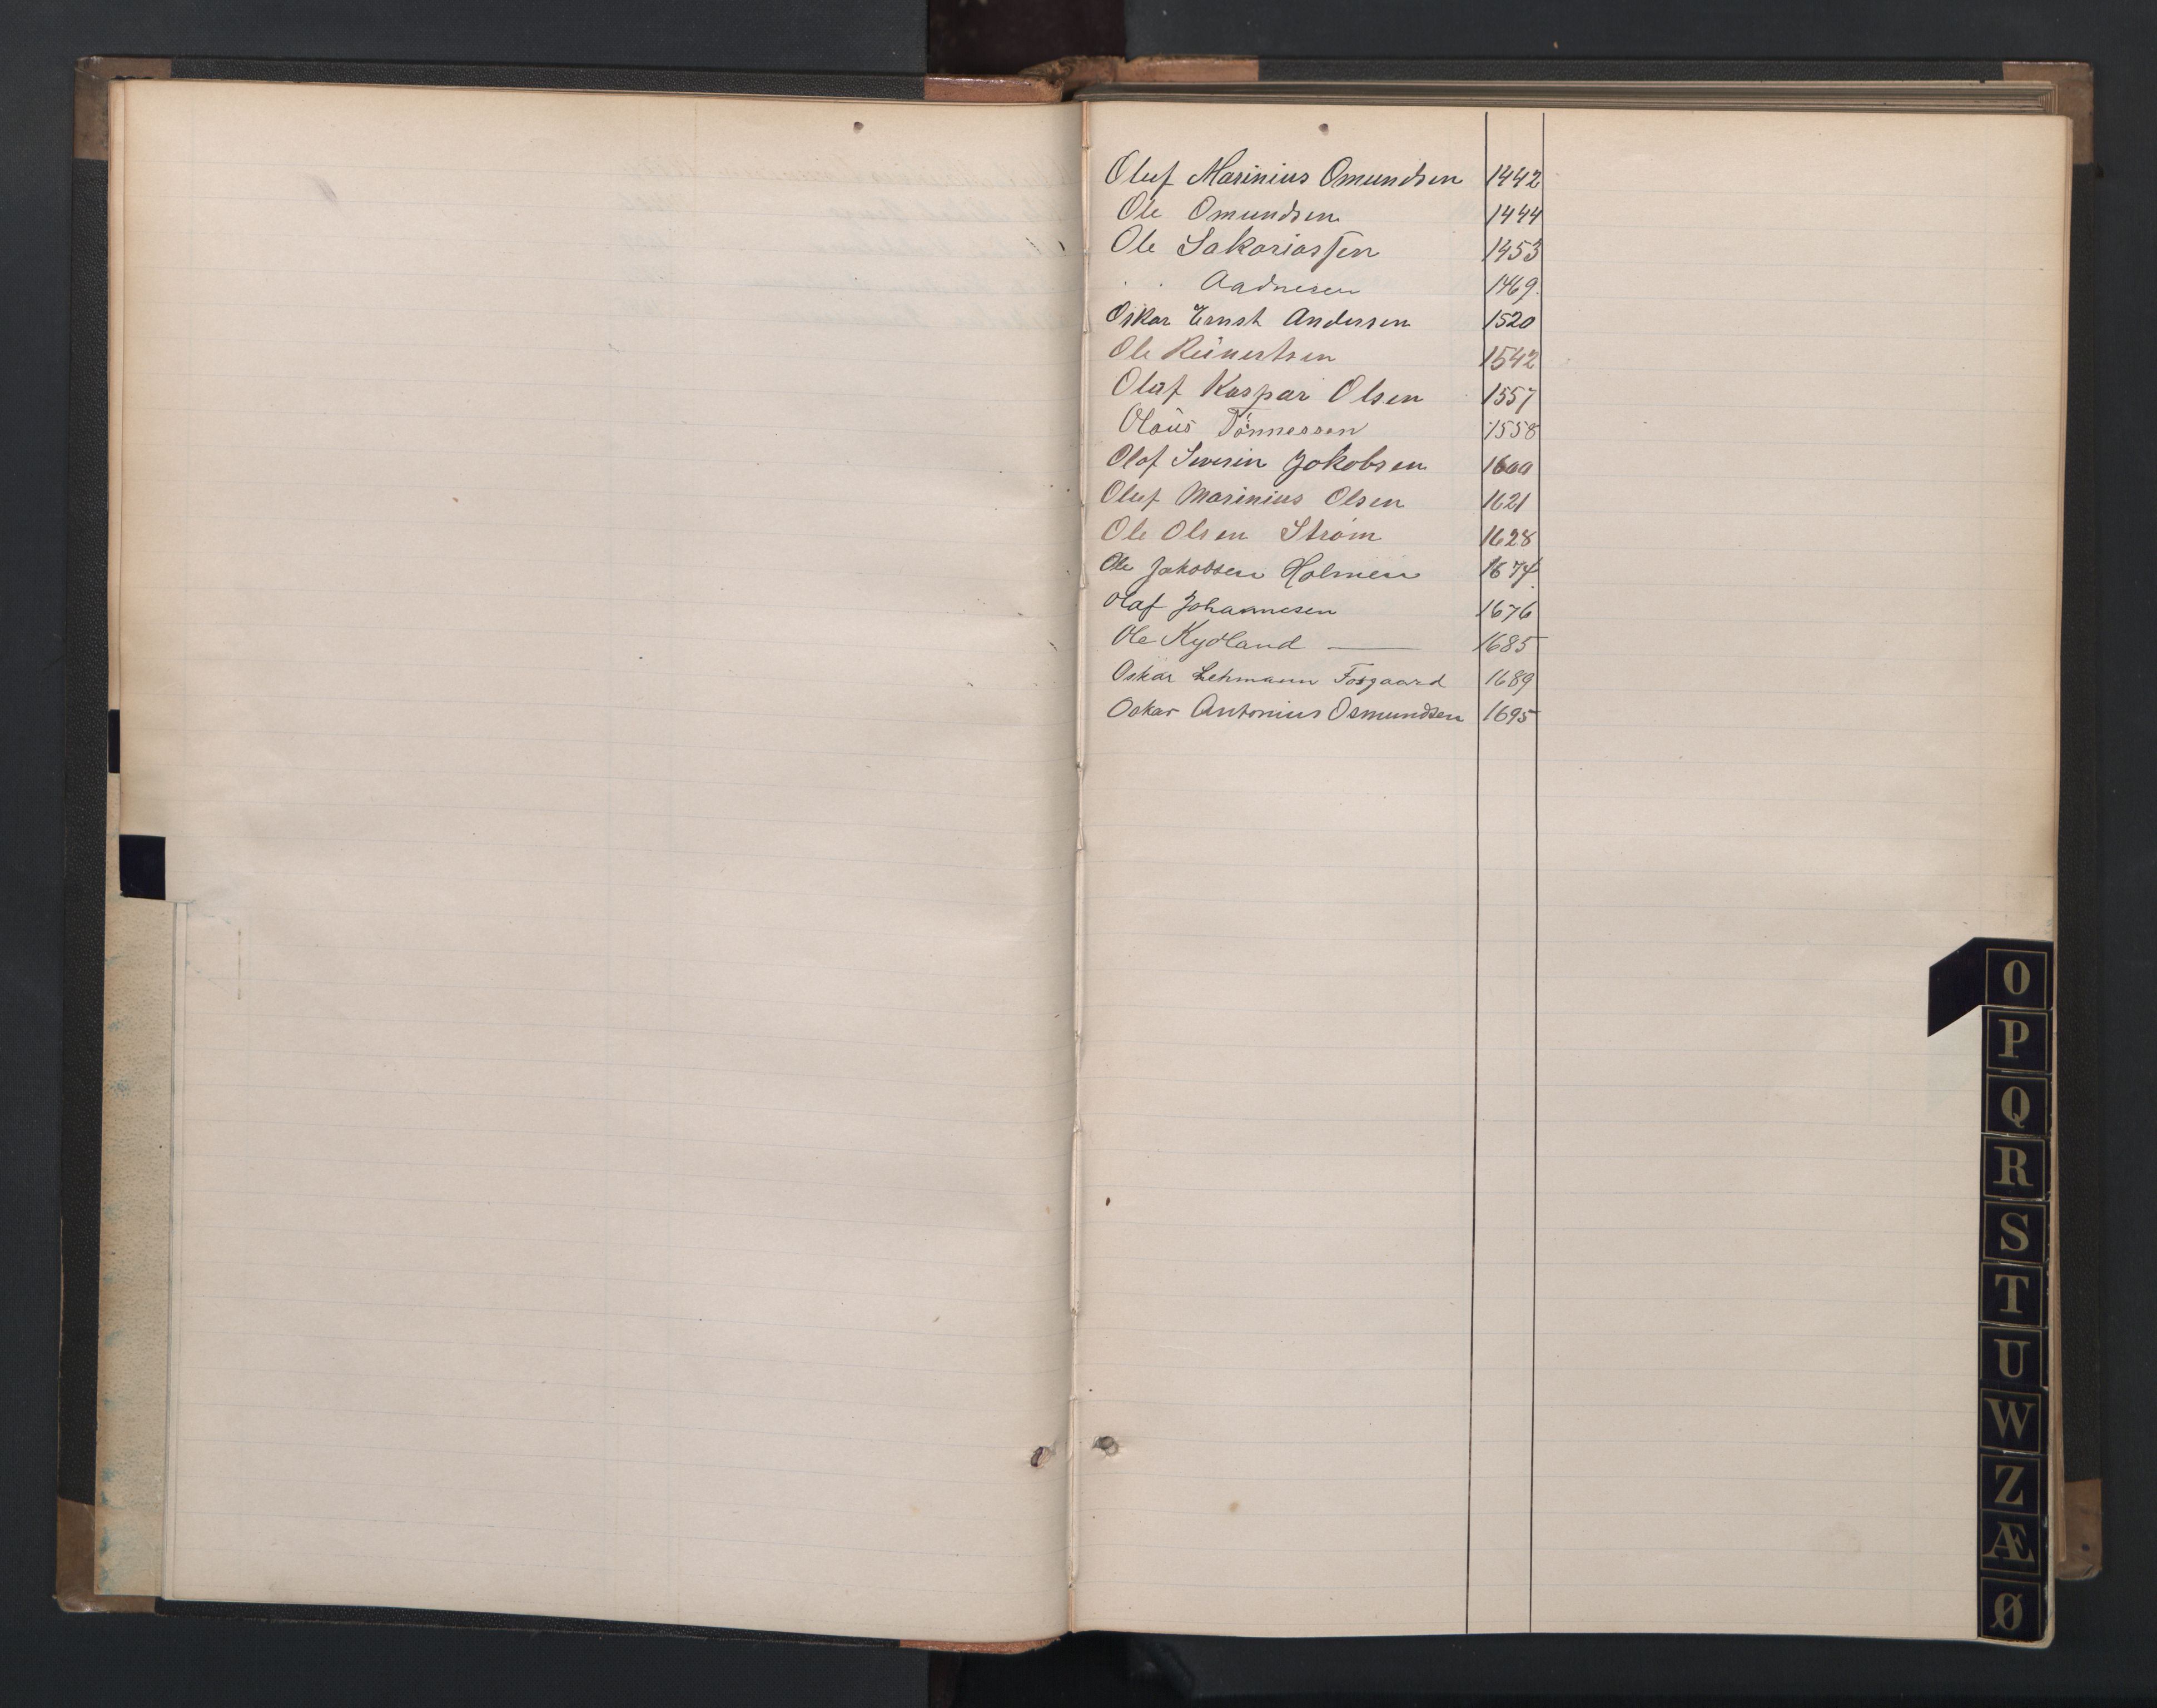 Oluf Marinius Omundsen 1442
Ole Omundsen 1444
Ole Sakariassen 1453
" " Aadnesen 1469.
Oskar Ernst Andersen 1520
Ole Reinertsen 1542
Olaf Kaspar Olsen 1557
Olaus Tønnessen 1558
Olaf Severin Jakobsen 1600
Oluf Marinius Olsen 1621
Ole Olsen Strøm 1628
Ole Jakobsen Holmen 1674
Olaf Johannesen 1676
Ole Kydland — 1685
Oskar Lehmann Fosgaard 1689
Oskar Antonius Osmundsen 1695
O
P
Q
R
S
T
U
W
Z
Æ
Ø